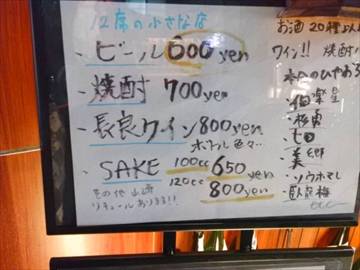 12席の小さな店
・ビール 600yen
・焼酎 700yen
・長良ワイン 800yen
ボトル色々…
・SAKE 100cc 650yen
120cc 800yen
その他
リキュールあります!!
お酒20種以
ワイン!! 焼酎
のひやおろ
・伯楽星
・七田
・美郷
・ソウホマレ
・臥龍梅
etc